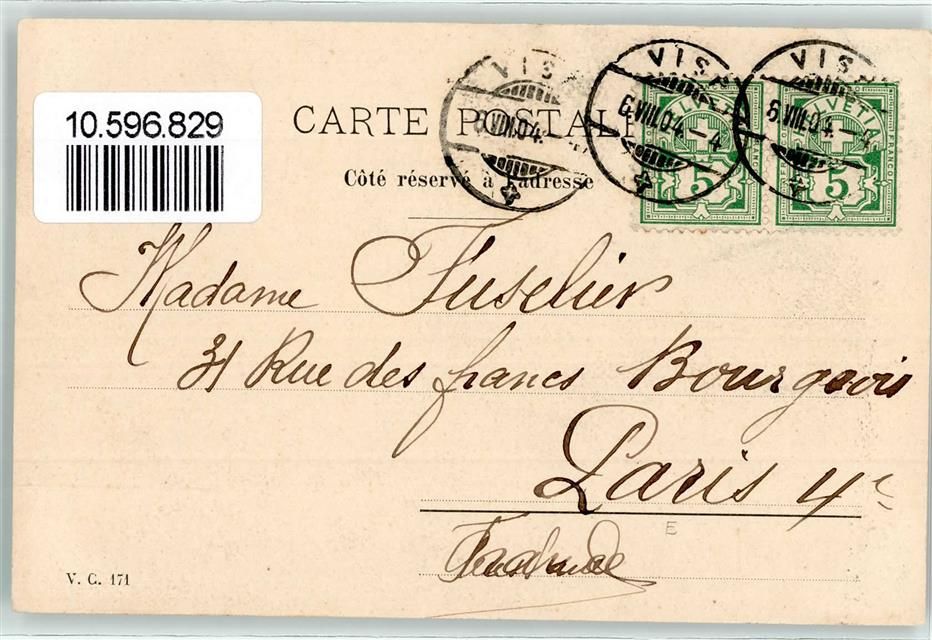 10.596.829
CARTE POSTALE
Côté réservé à l'adresse
VIS
VIII.04
VIS
6.VIII.04.-4
VIS
6.VIII.04.-4
HELVETIA
FRANCO
5
5
Madame Fuselier
31 Rue des francs Bourgeois
Paris 4e
E
V. C. 171